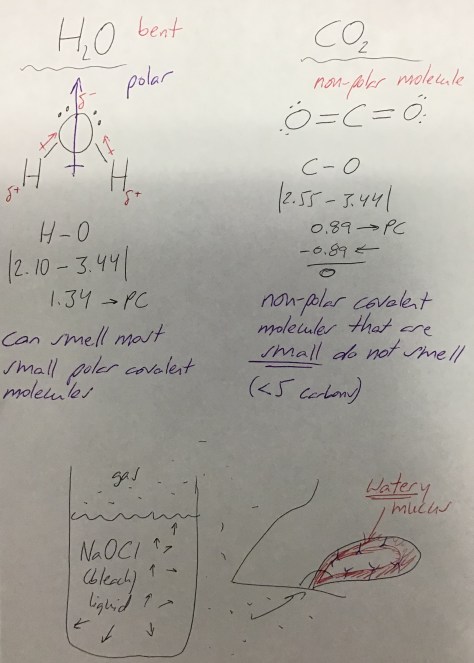 H₂O
bent
polar
δ-
H
H
δ+
δ+
H-O
|2.10 - 3.44|
1.34 → PC
can smell most
small polar covalent
molecules
CO₂
non-polar molecule
O=C=O
C-O
|2.55 - 3.44|
0.89 → PC
-0.89 ←
0
non-polar covalent
molecules that are
small do not smell
(<5 carbons)
gas
NaOCl
(bleach)
liquid
Watery
mucus